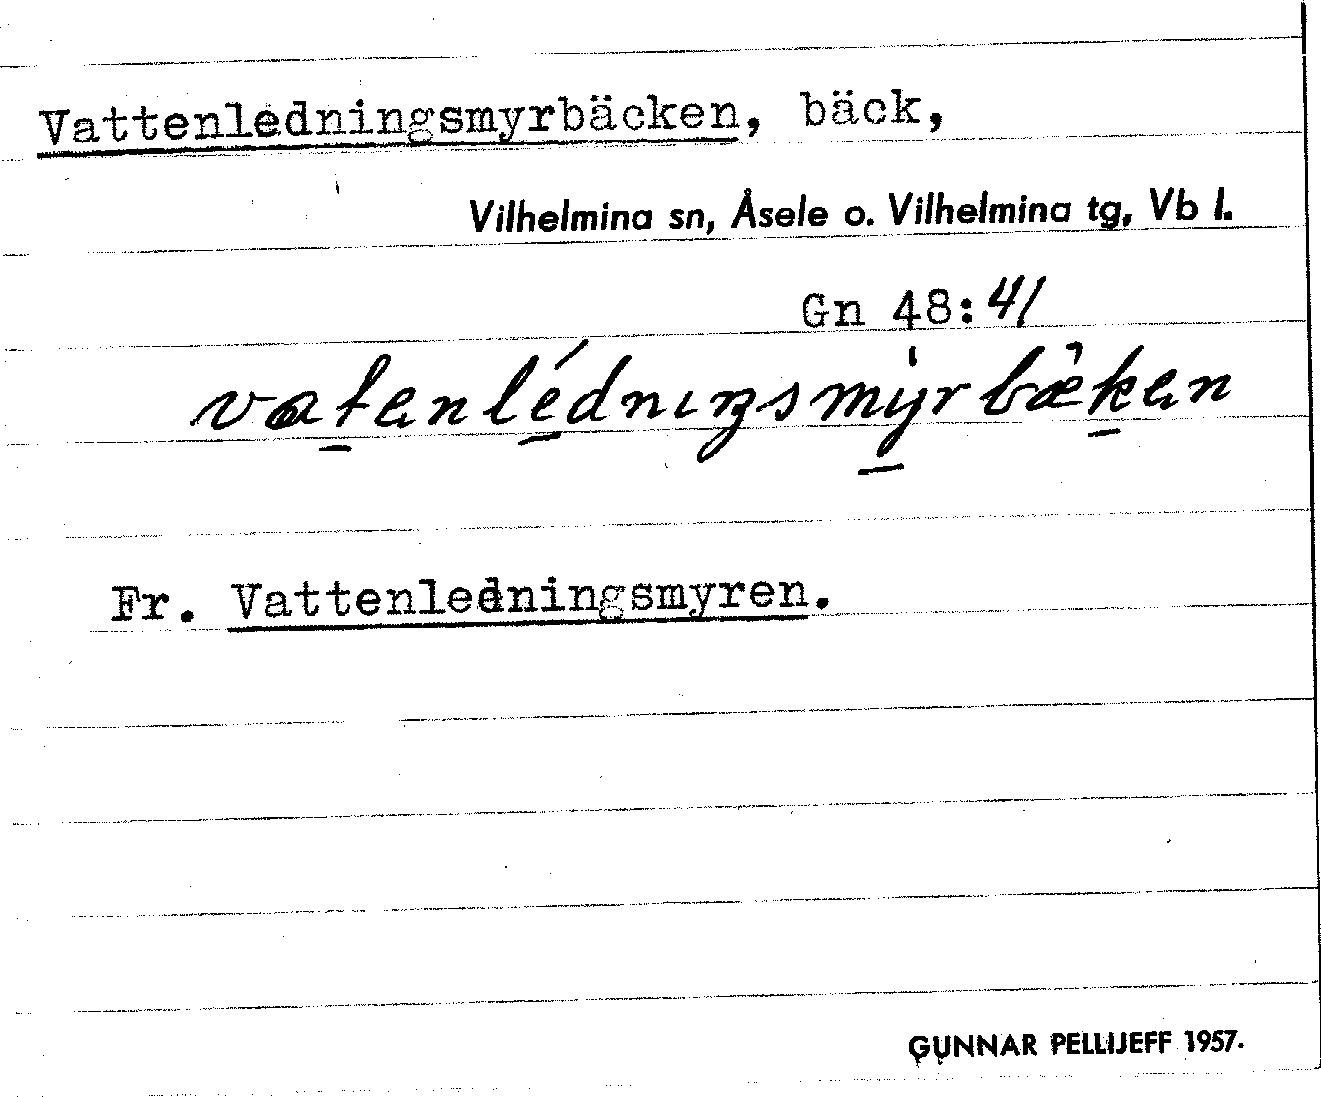 Vattenledningsmyrbäcken, bäck,
Vilhelmina sn, Åsele o. Vilhelmina tg, Vb l.
Gn 48:41
vatenlédnıŋsmỳrbæ̀ken
Fr. Vattenledningsmyren.
GUNNAR PELLIJEFF 1957.